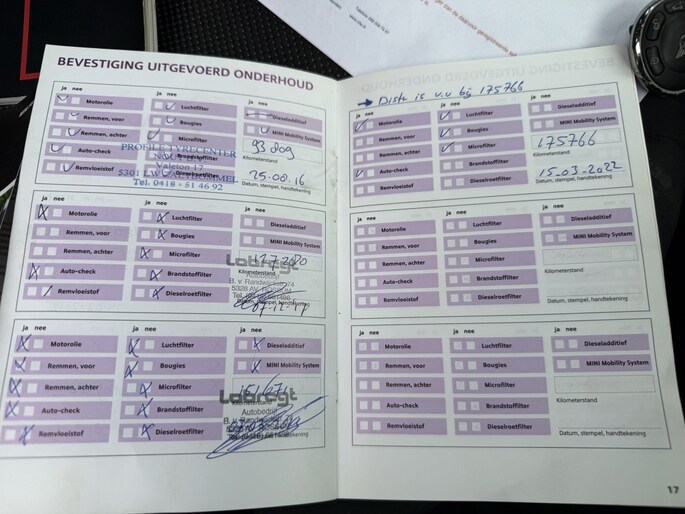 BEVESTIGING UITGEVOERD ONDERHOUD
ja nee
Motorolie
Remmen, voor
Remmen, achter
Auto-check
Remvloeistof
ja nee
Luchtfilter
Bougies
Microfilter
Brandstoffilter
Dieselroetfilter
ja nee
Dieseladditief
MINI Mobility System
Kilometerstand
25-08-16
Datum, stempel, handtekening
PROFILE TYRECENTER
Valeton 17
5301 LW ZALTBOMMEL
Tel. 0418 - 51 46 92
ja nee
Motorolie
Remmen, voor
Remmen, achter
Auto-check
Remvloeistof
ja nee
Luchtfilter
Bougies
Microfilter
Brandstoffilter
Dieselroetfilter
ja nee
Dieseladditief
MINI Mobility System
Kilometerstand
ja nee
Motorolie
Remmen, voor
Remmen, achter
Auto-check
Remvloeistof
ja nee
Luchtfilter
Bougies
Microfilter
Brandstoffilter
Dieselroetfilter
ja nee
Dieseladditief
MINI Mobility System
Autobedrijf
→ Distr is v.v bij 175766
ja nee
Motorolie
Remmen, voor
Remmen, achter
Auto-check
Remvloeistof
ja nee
Luchtfilter
Bougies
Microfilter
Brandstoffilter
Dieselroetfilter
ja nee
Dieseladditief
MINI Mobility System
175766
Kilometerstand
15-03-2022
Datum, stempel, handtekening
ja nee
Motorolie
Remmen, voor
Remmen, achter
Auto-check
Remvloeistof
ja nee
Luchtfilter
Bougies
Microfilter
Brandstoffilter
Dieselroetfilter
ja nee
Dieseladditief
MINI Mobility System
Kilometerstand
Datum, stempel, handtekening
ja nee
Motorolie
Remmen, voor
Remmen, achter
Auto-check
Remvloeistof
ja nee
Luchtfilter
Bougies
Microfilter
Brandstoffilter
Dieselroetfilter
ja nee
Dieseladditief
MINI Mobility System
Kilometerstand
Datum, stempel, handtekening
17